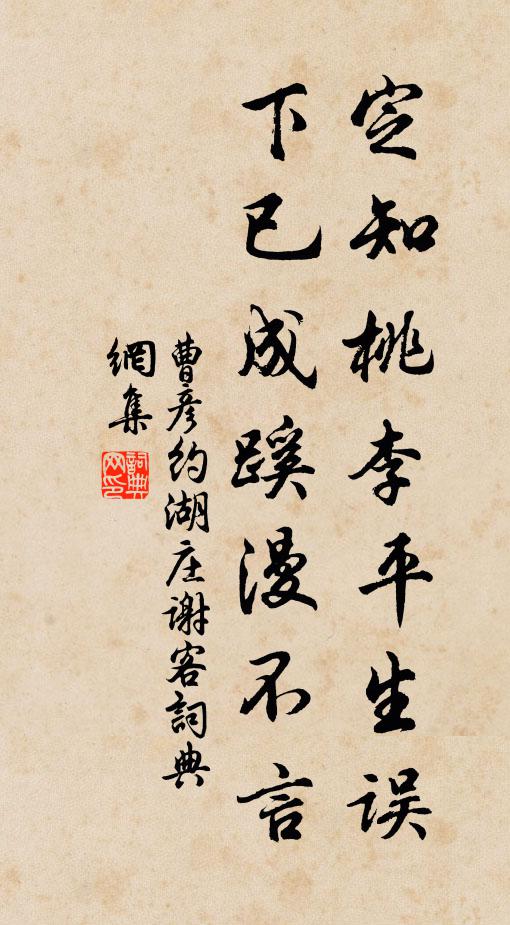 定知桃李平生误
下已成蹊漫不言
曹彦约湖庄谢客詞典
網集
詞典
网印